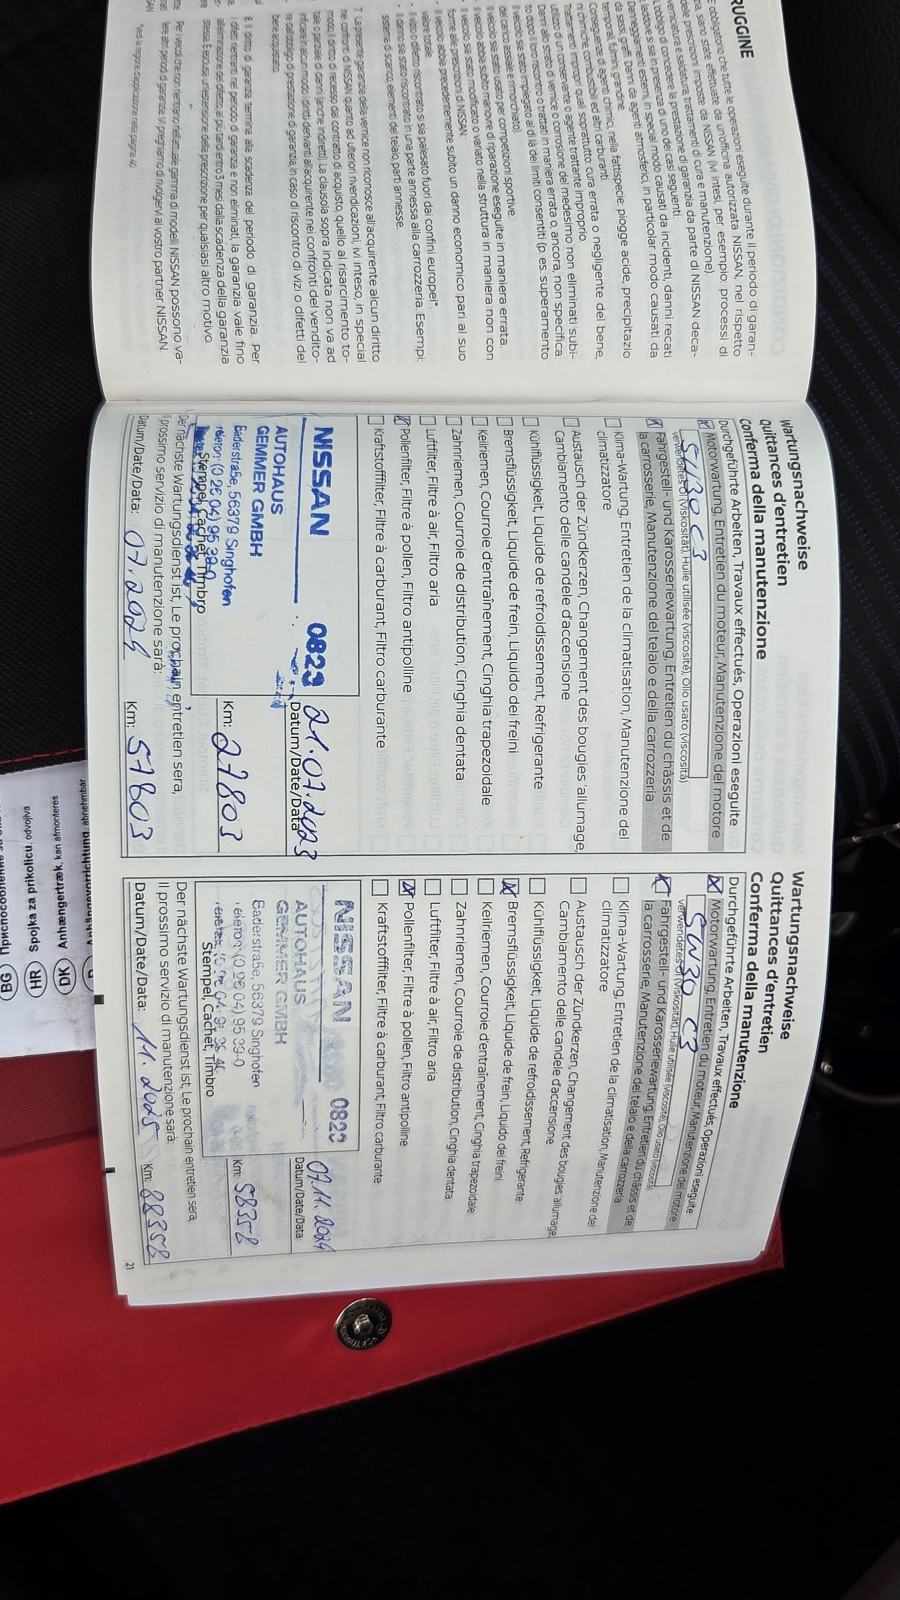 RUGGINE
È obbligatorio che tutte le operazioni eseguite durante il periodo di garan-
zia siano state effettuate da un'officina autorizzata NISSAN, nel rispetto
delle prescrizioni imposte da NISSAN (ivi intesi, per esempio: processi di
verniciatura e saldatura, trattamenti di cura e manutenzione).
L'obbligo di concedere la prestazione di garanzia da parte di NISSAN deca-
de laddove si sia in presenza di uno dei casi seguenti.
Danneggiamenti esterni, in special modo causati da incidenti, danni recati
da sassi, graffi. Danni da agenti atmosferici, in particolar modo causati da
temporali, fulmini, grandine.
Conseguenze di agenti chimici, nella fattispecie: piogge acide, precipitazio
ni chimiche, combustibili ed altri carburanti.
Trattamenti impropri quali soprattutto cura errata o negligente del bene,
utilizzo di un conservante o agente trattante improprio.
Danni alla vernice o corrosione del medesimo non eliminati subi-
to dopo il loro riscontro o trattati in maniera errata o, ancora, non specifica.
Il veicolo sia stato impiegato al di là dei limiti consentiti (p. es. superamento
del carico assiale e rimorchiato).
Il veicolo sia stato usato per competizioni sportive.
Il veicolo abbia subito manovre di riparazione eseguite in maniera errata.
Il veicolo sia stato modificato o variato nella struttura in maniera non con
forme alle prescrizioni di NISSAN.
Il veicolo abbia precedentemente subito un danno economico pari al suo
valore totale.
Il vizio o difetto riscontrato si sia palesato fuori dai confini europei*.
Il danno sia stato riscontrato in una parte annessa alla carrozzeria. Esempi:
sistema di scarico, elementi del telaio, parti annesse.
7. La presente garanzia della vernice non riconosce all'acquirente alcun diritto
nei confronti di NISSAN quanto ad ulteriori rivendicazioni, ivi inteso, in special
modo, il diritto di recesso dal contratto di acquisto, quello al risarcimento to-
tale o parziale di danni (anche indiretti). La clausola sopra indicata non va ad
inficiare in alcun modo i diritti derivanti all'acquirente nei confronti del vendito-
re dall'obbligo di prestazione di garanzia, in caso di riscontro di vizi o difetti del
bene acquistato.
8. Il diritto di garanzia termina alla scadenza del periodo di garanzia. Per
i difetti rientranti nel periodo di garanzia e non eliminati, la garanzia vale fino
all'eliminazione del difetto, al più tardi entro 3 mesi dalla scadenza della garanzia
stessa. È esclusa un'estensione della prescrizione per qualsiasi altro motivo.
Per i veicoli che non rientrano nell'attuale gamma di modelli NISSAN possono va-
lere altri periodi di garanzia. Vi preghiamo di rivolgervi al vostro partner NISSAN.
*Vedi la regione d'applicazione nella pagina 40
Wartungsnachweise
Quittances d'entretien
Conferma della manutenzione
Durchgeführte Arbeiten, Travaux effectués, Operazioni eseguite
Motorwartung, Entretien du moteur, Manutenzione del motore
5W30 C3
verwendetes Öl (Viskosität), Huile utilisée (viscosité), Olio usato (viscosità)
Fahrgestell- und Karosseriewartung, Entretien du châssis et de
la carrosserie, Manutenzione del telaio e della carrozzeria
Klima-Wartung, Entretien de la climatisation, Manutenzione del
climatizzatore
Austausch der Zündkerzen, Changement des bougies allumage,
Cambiamento delle candele d'accensione
Kühlflüssigkeit, Liquide de refroidissement, Refrigerante
Bremsflüssigkeit, Liquide de frein, Liquido dei freini
Keilriemen, Courroie d'entraînement, Cinghia trapezoidale
Zahnriemen, Courroie de distribution, Cinghia dentata
Luftfilter, Filtre à air, Filtro aria
Pollenfilter, Filtre à pollen, Filtro antipolline
Kraftstofffilter, Filtre à carburant, Filtro carburante
NISSAN 0823
AUTOHAUS
GEMMER GMBH
Bäderstraße, 56379 Singhofen
Telefon: (0 26 04) 95 39-0
Stempel, Cachet, Timbro
21.07.2023
Datum/Date/Data
Km: 27803
Der nächste Wartungsdienst ist, Le prochain entretien sera,
Il prossimo servizio di manutenzione sarà:
Datum/Date/Data: 07.2024 Km: 57803
Wartungsnachweise
Quittances d'entretien
Conferma della manutenzione
Durchgeführte Arbeiten, Travaux effectués, Operazioni eseguite
Motorwartung, Entretien du moteur, Manutenzione del motore
5W30 C3
verwendetes Öl (Viskosität), Huile utilisée (viscosité), Olio usato (viscosità)
Fahrgestell- und Karosseriewartung, Entretien du châssis et de
la carrosserie, Manutenzione del telaio e della carrozzeria
Klima-Wartung, Entretien de la climatisation, Manutenzione del
climatizzatore
Austausch der Zündkerzen, Changement des bougies allumage,
Cambiamento delle candele d'accensione
Kühlflüssigkeit, Liquide de refroidissement, Refrigerante
Bremsflüssigkeit, Liquide de frein, Liquido dei freini
Keilriemen, Courroie d'entraînement, Cinghia trapezoidale
Zahnriemen, Courroie de distribution, Cinghia dentata
Luftfilter, Filtre à air, Filtro aria
Pollenfilter, Filtre à pollen, Filtro antipolline
Kraftstofffilter, Filtre à carburant, Filtro carburante
NISSAN 0823
AUTOHAUS
GEMMER GMBH
Bäderstraße, 56379 Singhofen
Telefon: (0 26 04) 95 39-0
Stempel, Cachet, Timbro
07.11.2024
Datum/Date/Data
Km: 58358
Der nächste Wartungsdienst ist, Le prochain entretien sera,
Il prossimo servizio di manutenzione sarà:
Datum/Date/Data: 11.2025 Km: 88358
21
abnehmbar
DK Anhængertræk, kan afmonteres
HR Spojka za prikolicu, odvojiva
BG